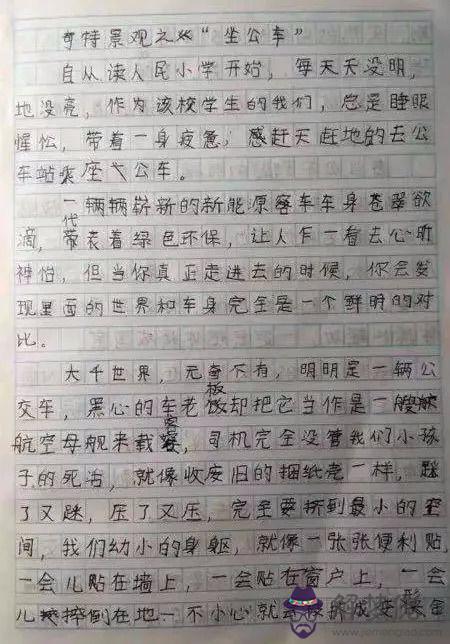 奇特景观之“坐公车”
自从读人民小学开始，每天天没明，
地没亮，作为该校学生的我们，总是睡眼
惺忪，带着一身疲惫，感赶天赶地的去公
车站乘座公车。
一辆辆崭新的新能原客车车身苍翠欲
滴，代表着绿色环保，让人乍一看去心旷
神怡，但当你真正走进去的时候，你会发
现里面的世界和车身完全是一个鲜明的对
比。
大千世界，无奇不有，明明是一辆公
交车，黑心的车老板却把它当作是一艘
航空母舰来载客，司机完全没管我们小孩
子的死活，就像收废旧的捆纸壳一样，踩
了又踩，压了又压，完全要挤到最小的空
间，我们幼小的身躯，就像一张张便利贴，
一会儿贴在墙上，一会贴在窗户上，一会
儿摔倒在地一不小心就会被挤成变